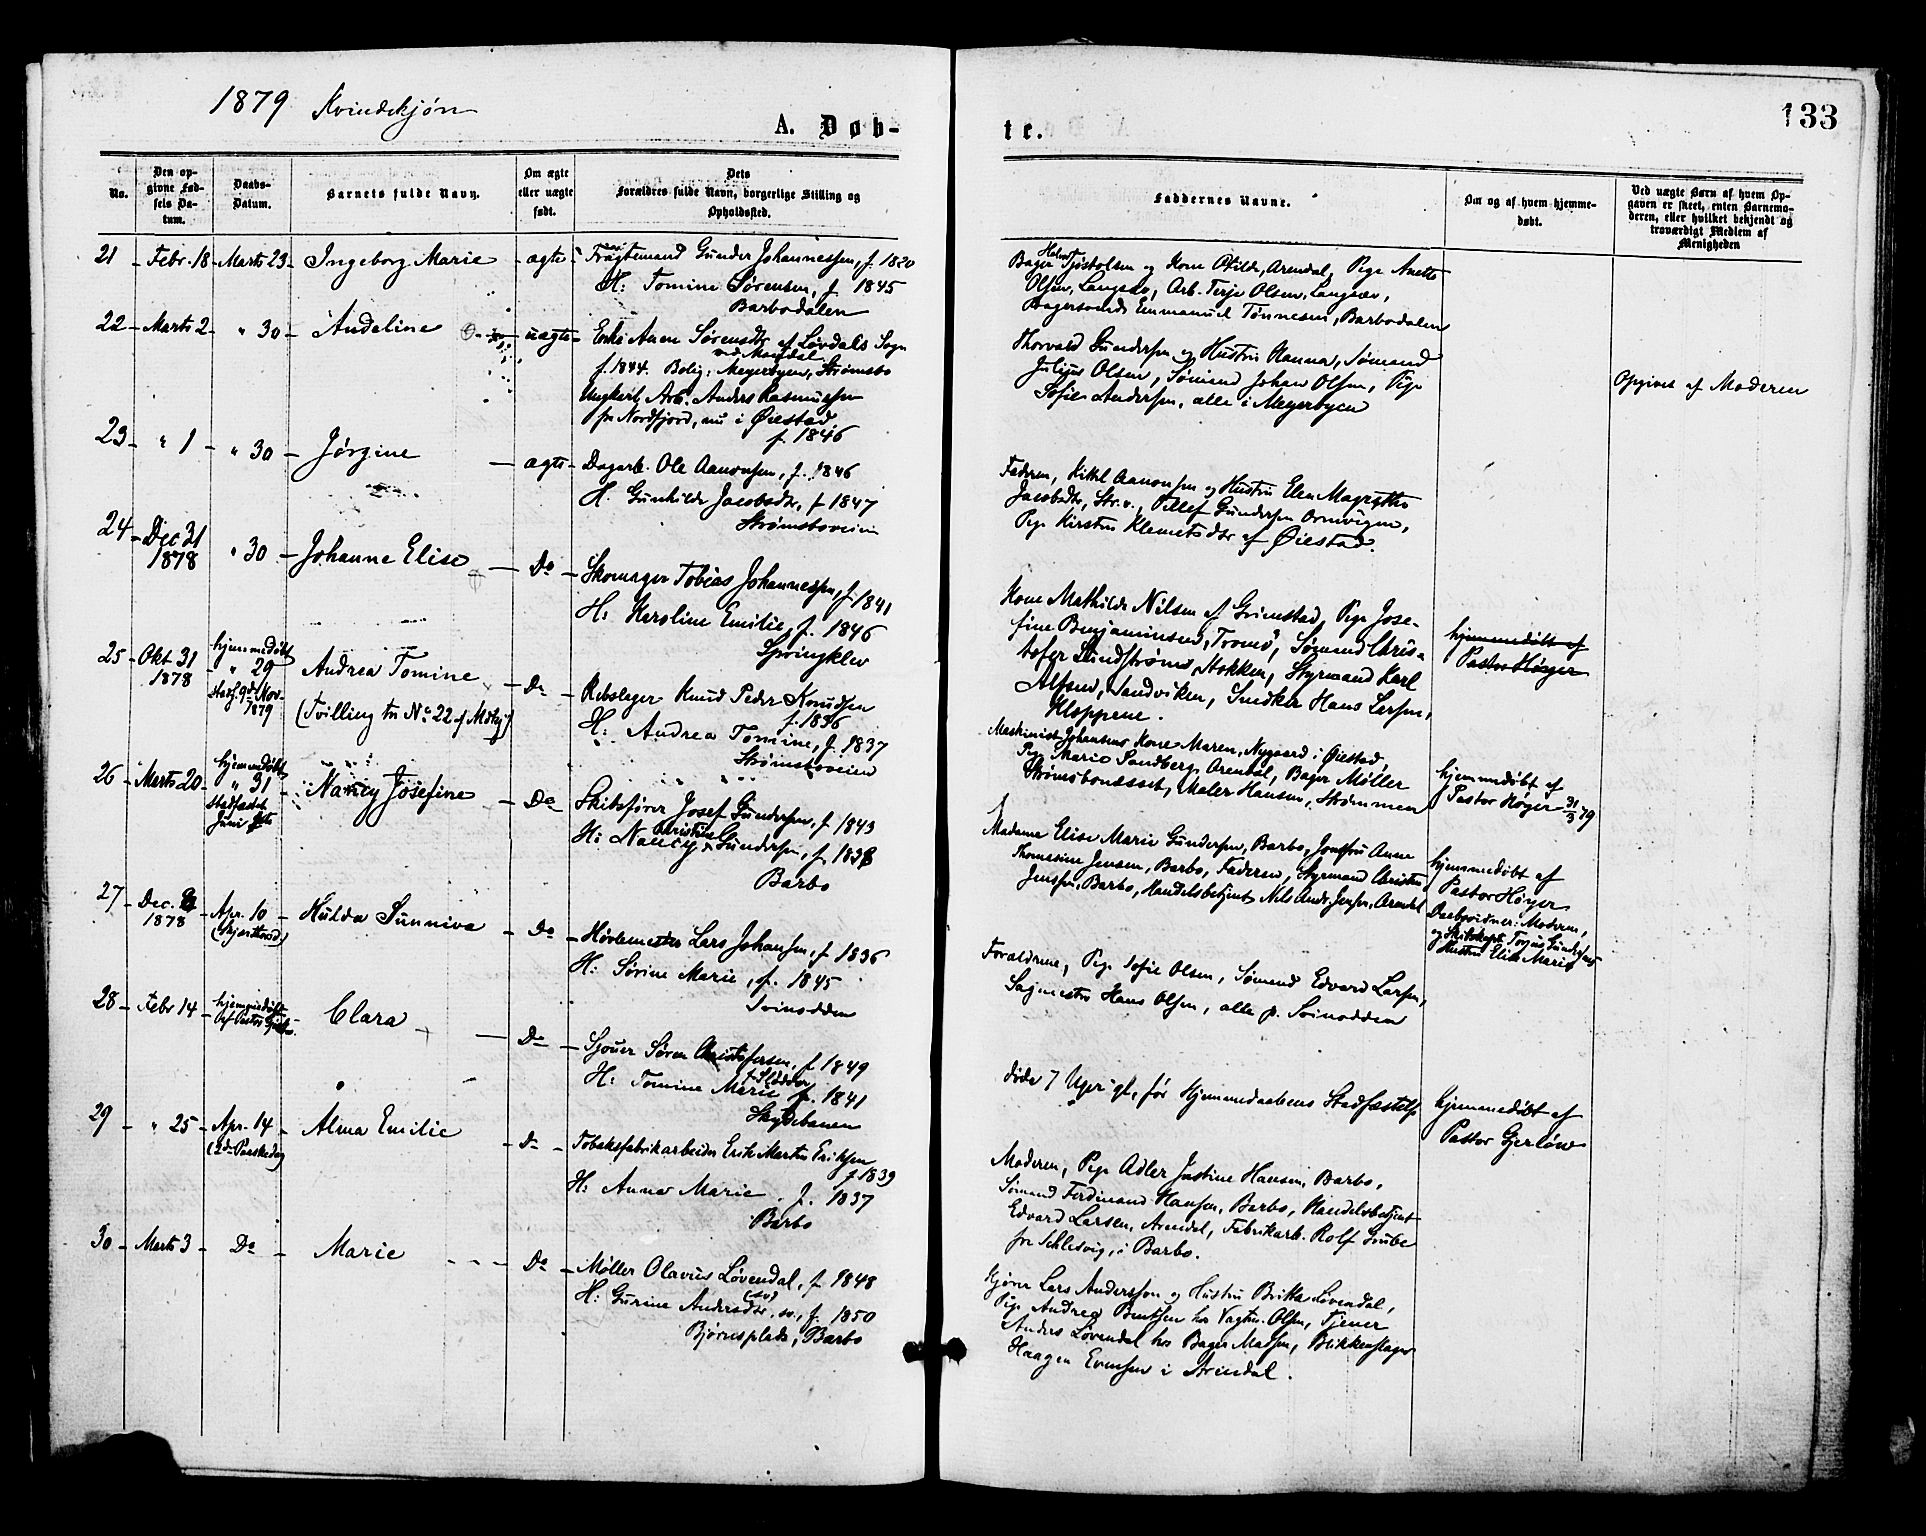 1879 Kvindekjøn
A. Døb-
No.
Den op-
givne Fød-
sels Da-
tum.
Daabs-
Datum.
Barnets fulde Navn.
Om ægte
eller uægte
født.
Dets
Forældres fulde Navn, borgerlige Stilling og
Opholdssted.
21 Febr. 18 Marts 23 Ingeborg Marie ægte Fragtemand Gunder Johannessen, f. 1820
H: Tomine Sørensen, f 1845
Barbodalen
22 Marts 2 " 30 Andeline uægte Enke Anen Sørensdtr. af Løvdals Sogn
ved Mandal
f. 1844. Bolig: Meyerbyen, Strømsbo
Ungkarl, Arb. Anders Rasmussen
fr Nordfjord, nu i Øiestad
f. 1846
23 " 1 " 30 Jørgine ægte Dagarb. Ole Aanonsen, f. 1846
H. Gunhilde Jacobsdtr, f 1847
Strømsboveien
24 Dec 31
1878 " 30 Johanne Elise Do Skomager Tobias Johannessen, f. 1841
H: Karoline Emilie, f. 1846
Springklev
25 Okt 31
1878
hjemmedøbt
" 29
stadf. 9de Nov.
1879
Andrea Tomine
(Tvilling til No 22 af Mandkj.)
Do Rebslager Knud Peder Knudsen
f. 1836
H: Andrea Tomine, f. 1837
Strømsboveien
26 Marts 20
hjemmedøbt
" 31
stadfæstet
Juni
Nancy Josefine
Do Skibsfører Josef Gundersen, f 1843
Christine
H: Nancy Gundersen, f. 1838
Barbo
27 Dec.
1878
Apr. 10
(Skjærthorsd)
Hulda Sunniva
Do Høvlemester Lars Johansen, f 1836
H: Sørine Marie, f. 1845
Svinodden
28 Febr 14
hjemmedøbt
af Pastor
Clara
Do Sjouer Søren Christofersen, f 1849
H: Tomine Marie f. 1841
Skydebanen
29 " 25 Apr. 14
(2den Paaskedag)
Alma Emilie
Do Tobaksfabrikarbeider Erik Martin Eriksen
f 1839
H: Anna Marie. f. 1837
Barbo
30 Marts 3 Do Marie Do Møller Olavus Løvendal, f 1848
H: Gurine Andersdtr. f. 1850
Bjørnesplads, Barbo
te.
133
Faddernes Navne.
Om og af hvem hjemme-
døbt.
Ved uægte Børn af hvem Op-
gaven er skeet, enten Barnemo-
deren, eller hvilket bekjendt og
troværdigt Medlem af
Menigheden
Bager Tjøstolsen og Kone Otilde, Arendal, Pige Anette
Olsen, Langsæv, Arb. Terje Olsen, Langsæv,
Bagersvend Emmanuel Tønnesen, Barbodalen
Thorvald Gundersen og Hustru Hanna, Sømand
Julius Olsen, Sømand Johan Olsen, Pige
Sofie Andersen, alle i Meyerbyen
Opgivet af Moderen
Faderen, Kittil Aanonsen og Hustru Elen Magrethe
Jacobsdtr, Str.v., Tellef Gundersen Ornevigen,
Pige Kirstin Klemetsdtr af Øiestad.
Kone Mathilde Nilsen af Grimstad, Pige Jose-
fine Benjaminsen, Tromø, Sømand Chris-
tofer Lindstrøm, Stokken, Styrmand Karl
Alfsen, Sandviken, Snedker Hans Larsen,
Kloppene.
hjemmedøbt af
Pastor Høyer
Maskinist Johansens Kone Maren, Nygaard i Øiestad,
Pige Marie Sandberg, Arendal, Bager Møller
Strømsbonesset, Maler Hansen, Strømmen
hjemmedøbt af
Pastor Høyer 31/3 79
Madame Elise Marie Gundersen, Barbo, Jomfru Anne
Thomasine Jensen, Barbo, Faderen, Styrmand Christen
Jensen, Barbo, Handelsbetjent Nils Andr. Jensen, Arendal
hjemmedøbt af
Pastor Høyer
Daabsvidner: Moderen,
og Skibskapt. Torjus Gundersens
Hustru Elise Marie
Forældrene, Pige Sofie Olsen, Sømand Edvard Larsen,
Sagmester Hans Olsen, alle p. Svinodden
døde 7 Uger gl., før Hjemmedaabens Stadfæstelse
hjemmedøbt af
Pastor Gjerløw
Moderen, Pige Adler Justine Hansen, Barbo,
Sømand Ferdinand Hansen, Barbo, Handelsbetjent
Edvard Larsen, Arendal, Fabrikarb. Rolf Grube
fra Schlesvig, i Barbo.
Kjører Lars Anderssøn og Hustru Britta Løvendal,
Pige Andrea Bentsen hos Olsen, Tjener
Anders Løvendal hos Bager Madsen, Blikkenslager
Haagen Evensen i Arendal.